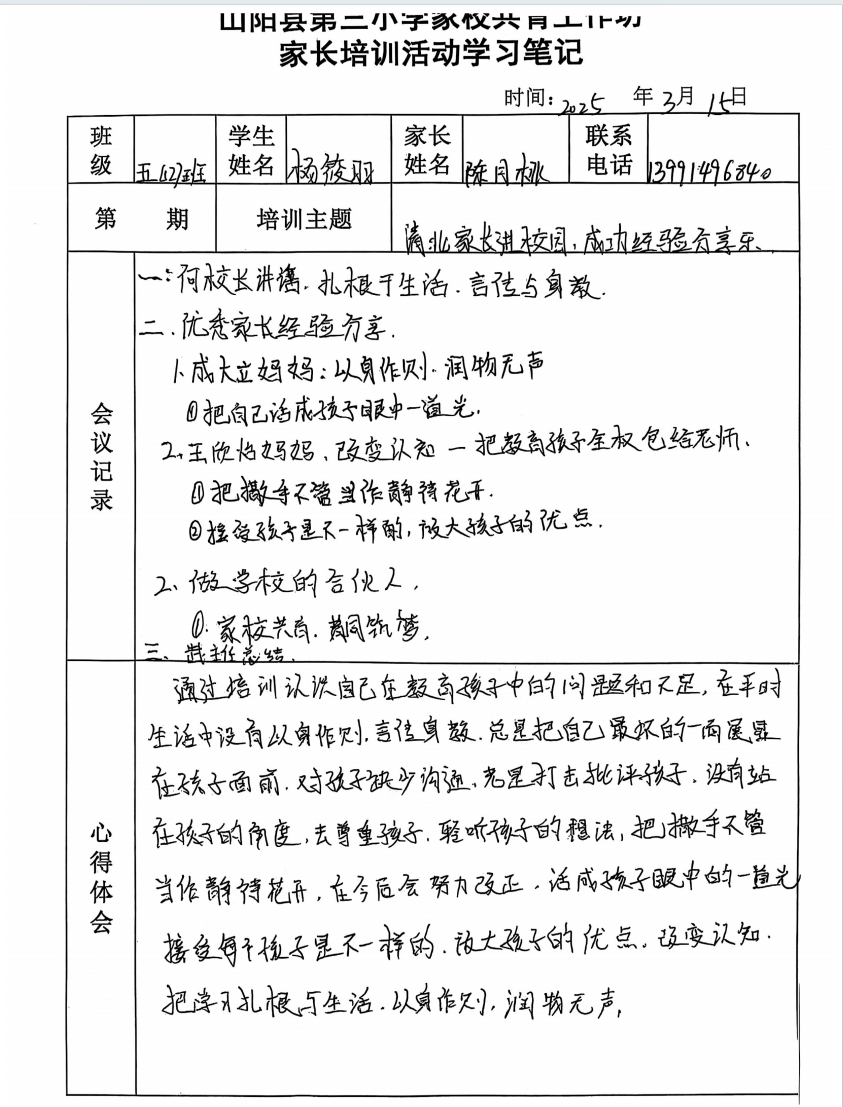 山阳县第三小学家校共育工作坊
家长培训活动学习笔记
时间:2025 年 3月 15日
班级 五(12)班 学生姓名 杨筱羽 家长姓名 陈月桃 联系电话 13991496840
第 期 培训主题 清北家长进校园,成功经验分享乐.
会议记录
一:何校长讲话.扎根于生活.言传与身教.
二.优秀家长经验分享.
1.成大立妈妈:以身作则.润物无声
①把自己活成孩子眼中一道光.
2.王欣怡妈妈.改变认知一把教育孩子全权包给老师、
①把撒手不管当作静待花开.
②接受孩子是不一样的,放大孩子的优点.
2、做学校的合伙人,
①.家校共育.共同筑梦.
三、武主任总结.
心得体会
通过培训认识自己在教育孩子中的问题和不足,在平时
生活中没有以身作则.言传身教.总是把自己最坏的一面展显
在孩子面前.对孩子缺少沟通,老是打击批评孩子.没有站
在孩子的角度,去尊重孩子.轻听孩子的想法,把撒手不管
当作静待花开,在今后会努力改正.活成孩子眼中的一道光
接受每个孩子是不一样的.放大孩子的优点.改变认知.
把学习扎根与生活.以身作则,润物无声,